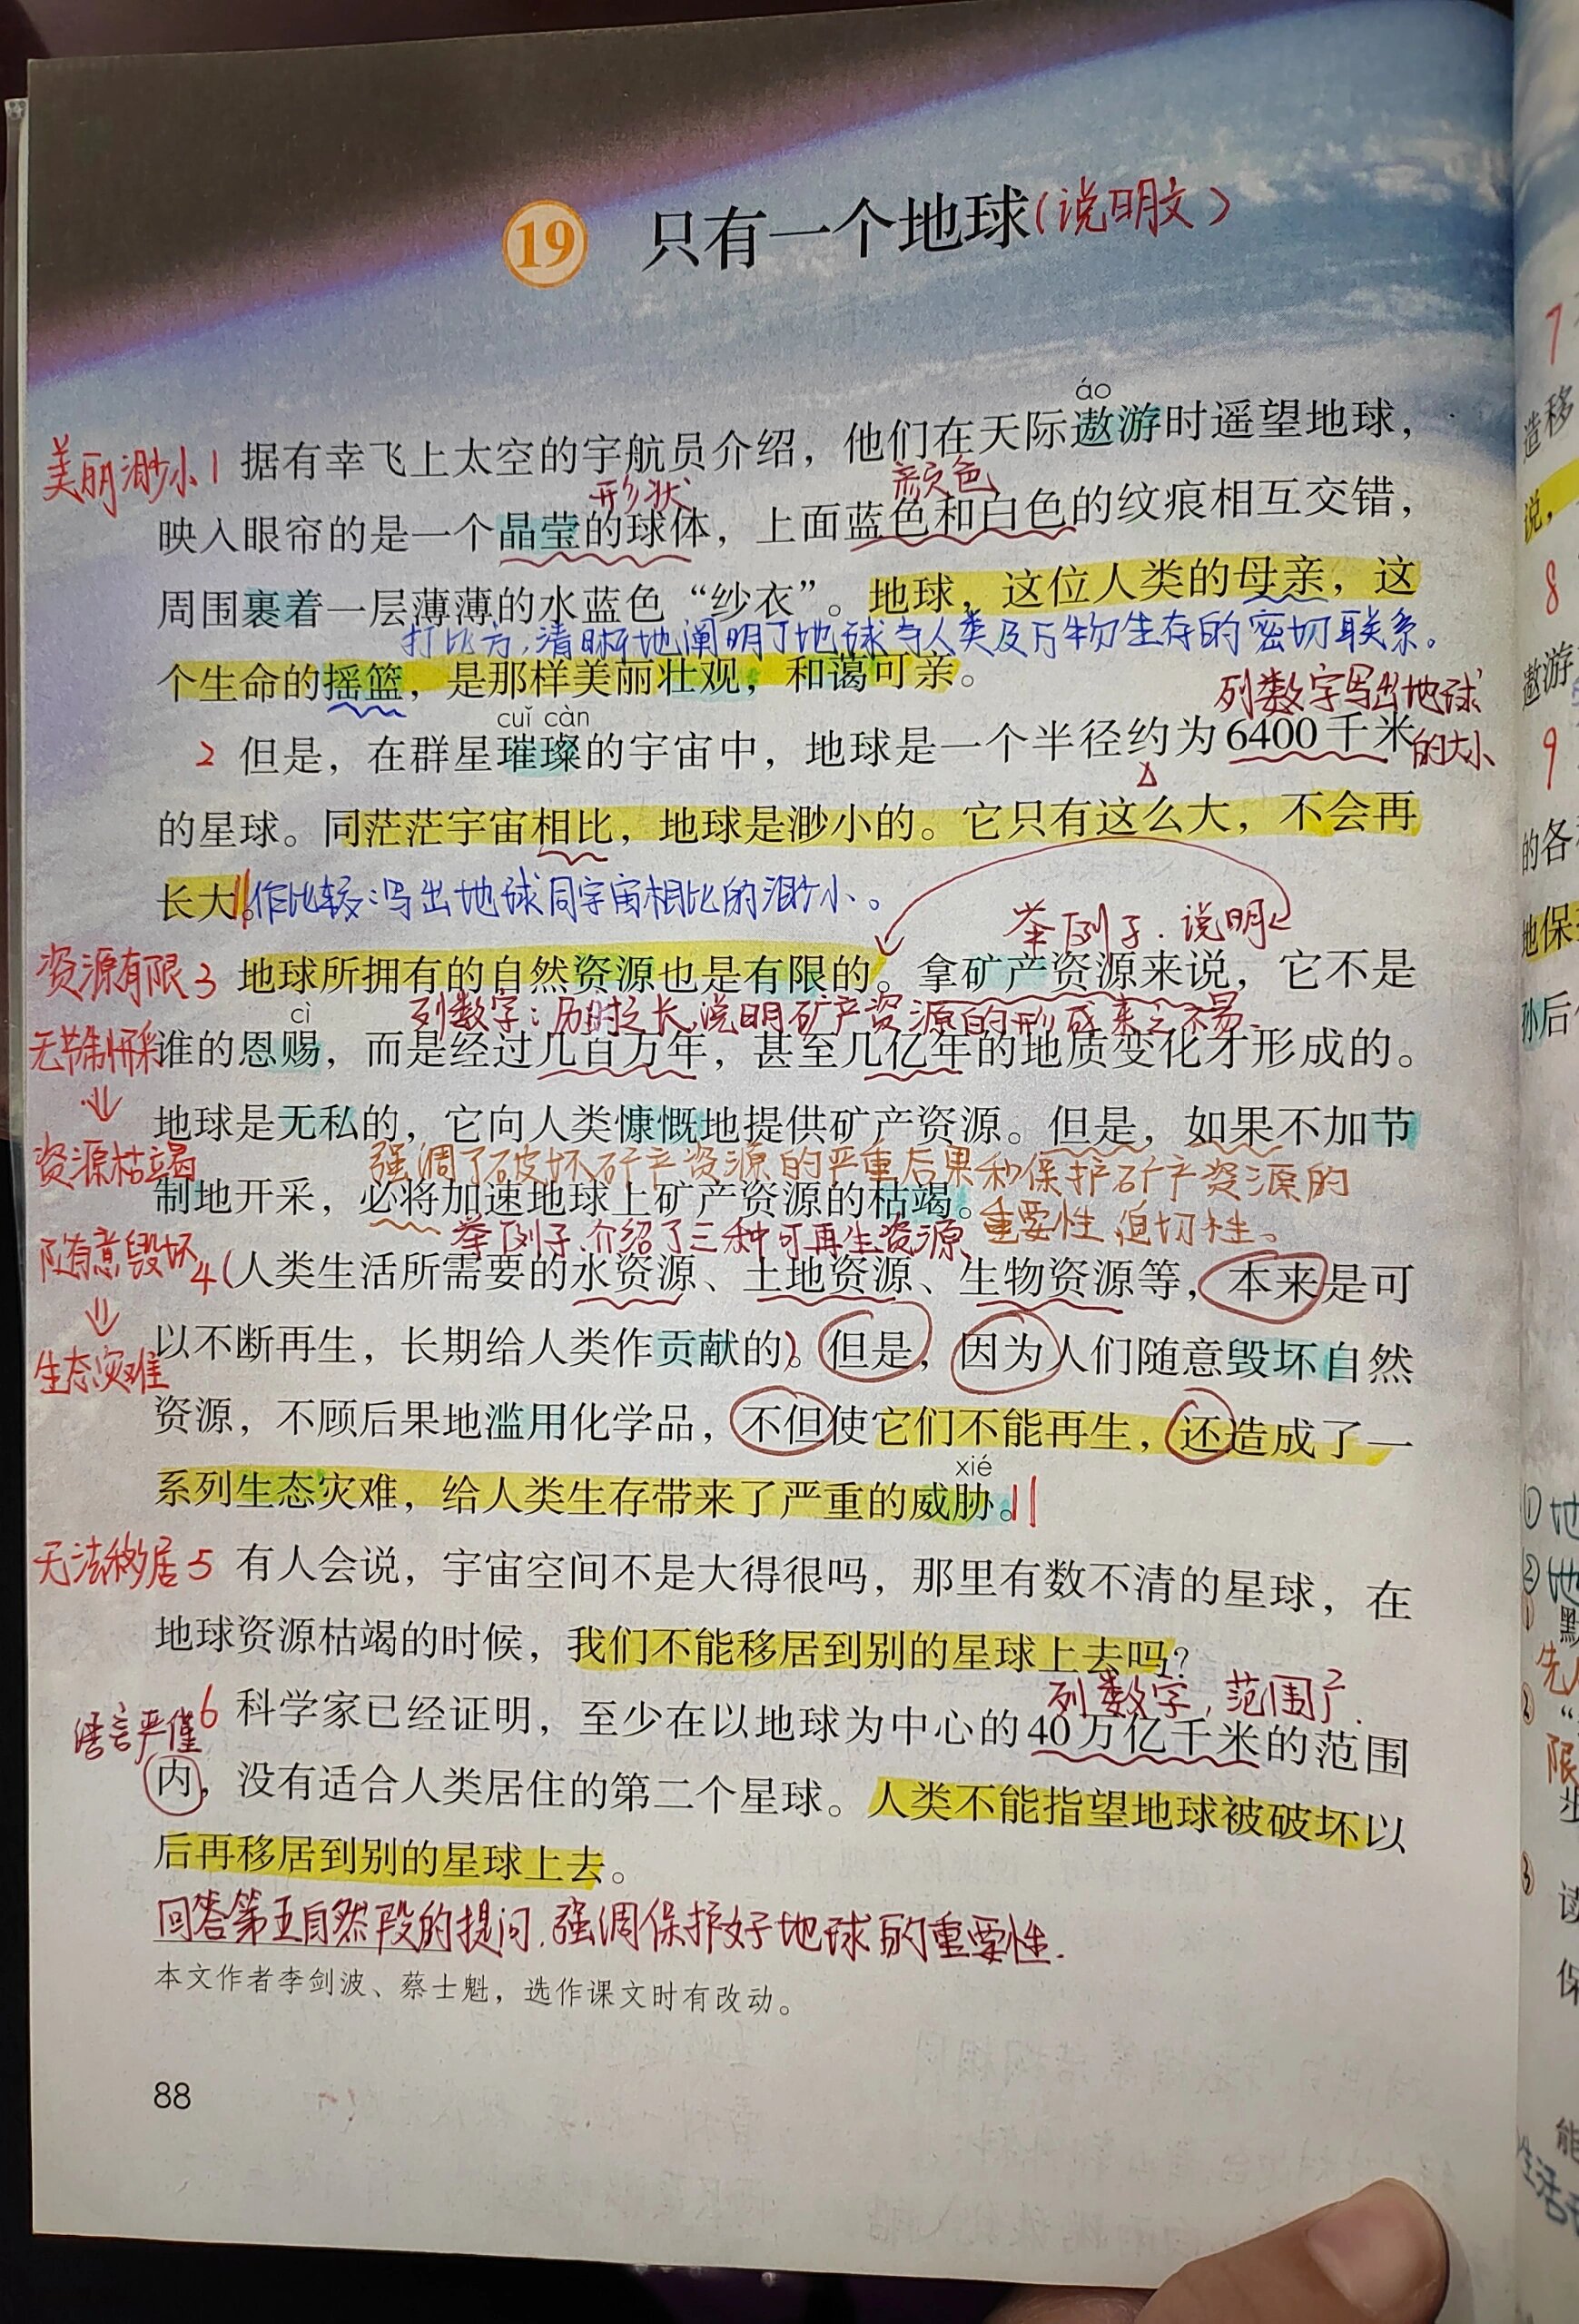 19 只有一个地球(说明文)
áo
美丽渺小1 据有幸飞上太空的宇航员介绍，他们在天际遨游时遥望地球，
形状 颜色
映入眼帘的是一个晶莹的球体，上面蓝色和白色的纹痕相互交错，
周围裹着一层薄薄的水蓝色“纱衣”。地球，这位人类的母亲，这
打比方，清晰地阐明了地球与人类及万物生存的密切联系。
个生命的摇篮，是那样美丽壮观，和蔼可亲。
列数字写出地球
cuǐ càn
2 但是，在群星璀璨的宇宙中，地球是一个半径约为6400千米的大小
的星球。同茫茫宇宙相比，地球是渺小的。它只有这么大，不会再
长大。作比较：写出地球同宇宙相比的渺小。
举例子.说明
资源有限3 地球所拥有的自然资源也是有限的。拿矿产资源来说，它不是
cì 列数字：历时之长，说明矿产资源的形成来之不易.
无节制开采谁的恩赐，而是经过几百万年，甚至几亿年的地质变化才形成的。
地球是无私的，它向人类慷慨地提供矿产资源。但是，如果不加节
资源枯竭 强调了破坏矿产资源的严重后果和保护矿产资源的
制地开采，必将加速地球上矿产资源的枯竭。
重要性，迫切性。
举例子.介绍了三种可再生资源
随意毁坏4(人类生活所需要的水资源、土地资源、生物资源等，本来是可
以不断再生，长期给人类作贡献的)。但是，因为人们随意毁坏自然
生态灾难
资源，不顾后果地滥用化学品，不但使它们不能再生，还造成了一
xié
系列生态灾难，给人类生存带来了严重的威胁。
无法移居5 有人会说，宇宙空间不是大得很吗，那里有数不清的星球，在
地球资源枯竭的时候，我们不能移居到别的星球上去吗？
列数字，范围广.
6 科学家已经证明，至少在以地球为中心的40万亿千米的范围
语言严谨
内，没有适合人类居住的第二个星球。人类不能指望地球被破坏以
后再移居到别的星球上去。
回答第五自然段的提问.强调保护好地球的重要性.
本文作者李剑波、蔡士魁，选作课文时有改动。
88
7
造移
说，
8
遨游
9
的各
地保
孙后
①地
②地
默
先
限
③
读
保
能
生活